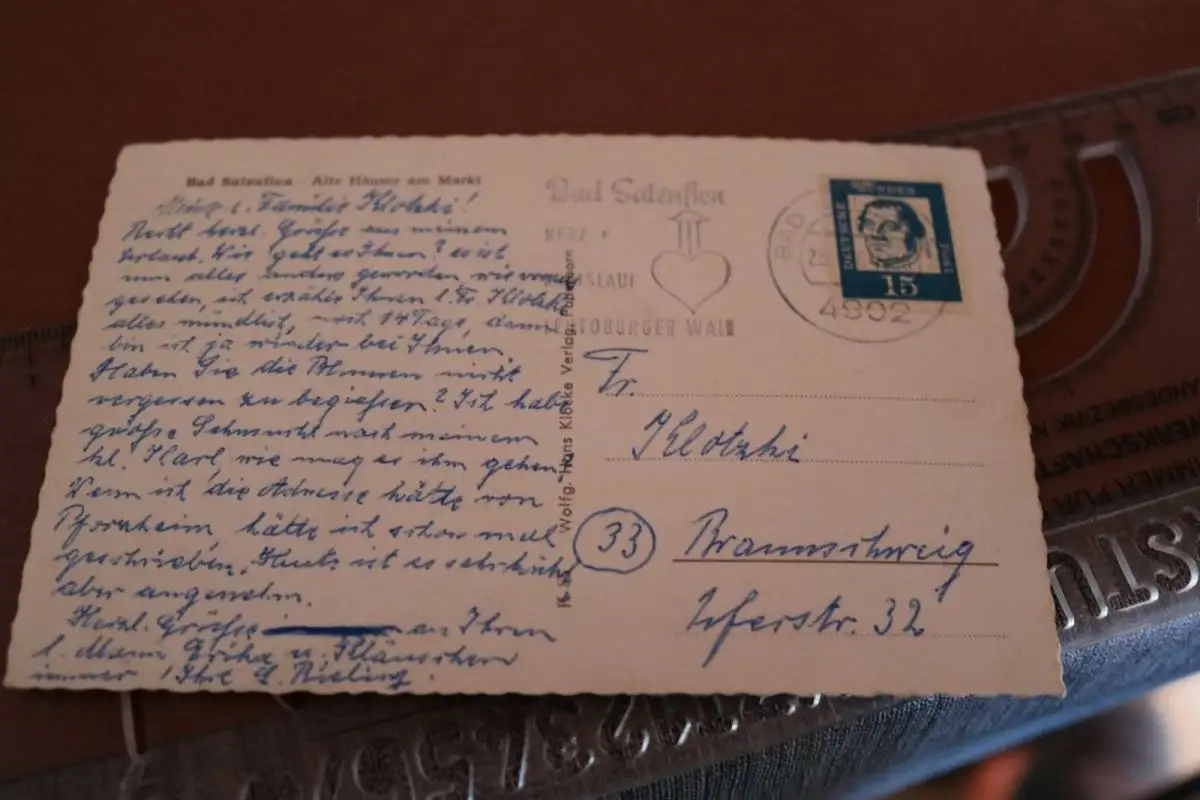 Bad Salzuflen Alte Häuser am Markt
Familie Klotzki!
Recht herzl. Größe aus meinem
Urlaub. Wie geht es Ihnen? es ist
nun alles anders geworden wie
gesehen, ich erzähle Ihnen l. Fr. Klotzki
alles mündlich, noch 14 Tage, dann
bin ich ja wieder bei Ihnen.
Haben Sie die Blumen nicht
vergessen zu begießen? Ich habe
große Sehnsucht nach meinem
kl. Karl, wie mag es ihm gehen,
Wenn ich die Adresse hätte von
Pforzheim, hätte ich schon mal
geschrieben. Heute ist es sehr kühl
aber angenehm.
Herzl. Größe an Ihren
l. Mann Erika u. Kläuschen
immer Ihre Bieling.
Wolfg. Hans Klocke Verlag, Paderborn
Bad Salzuflen
HERZ +
SLAUF
TOBURGER WALD
BAD
4902
DEUTSCHE BUNDESPOST
15
Fr.
Klotzki
33 Braunschweig
Uferstr. 32